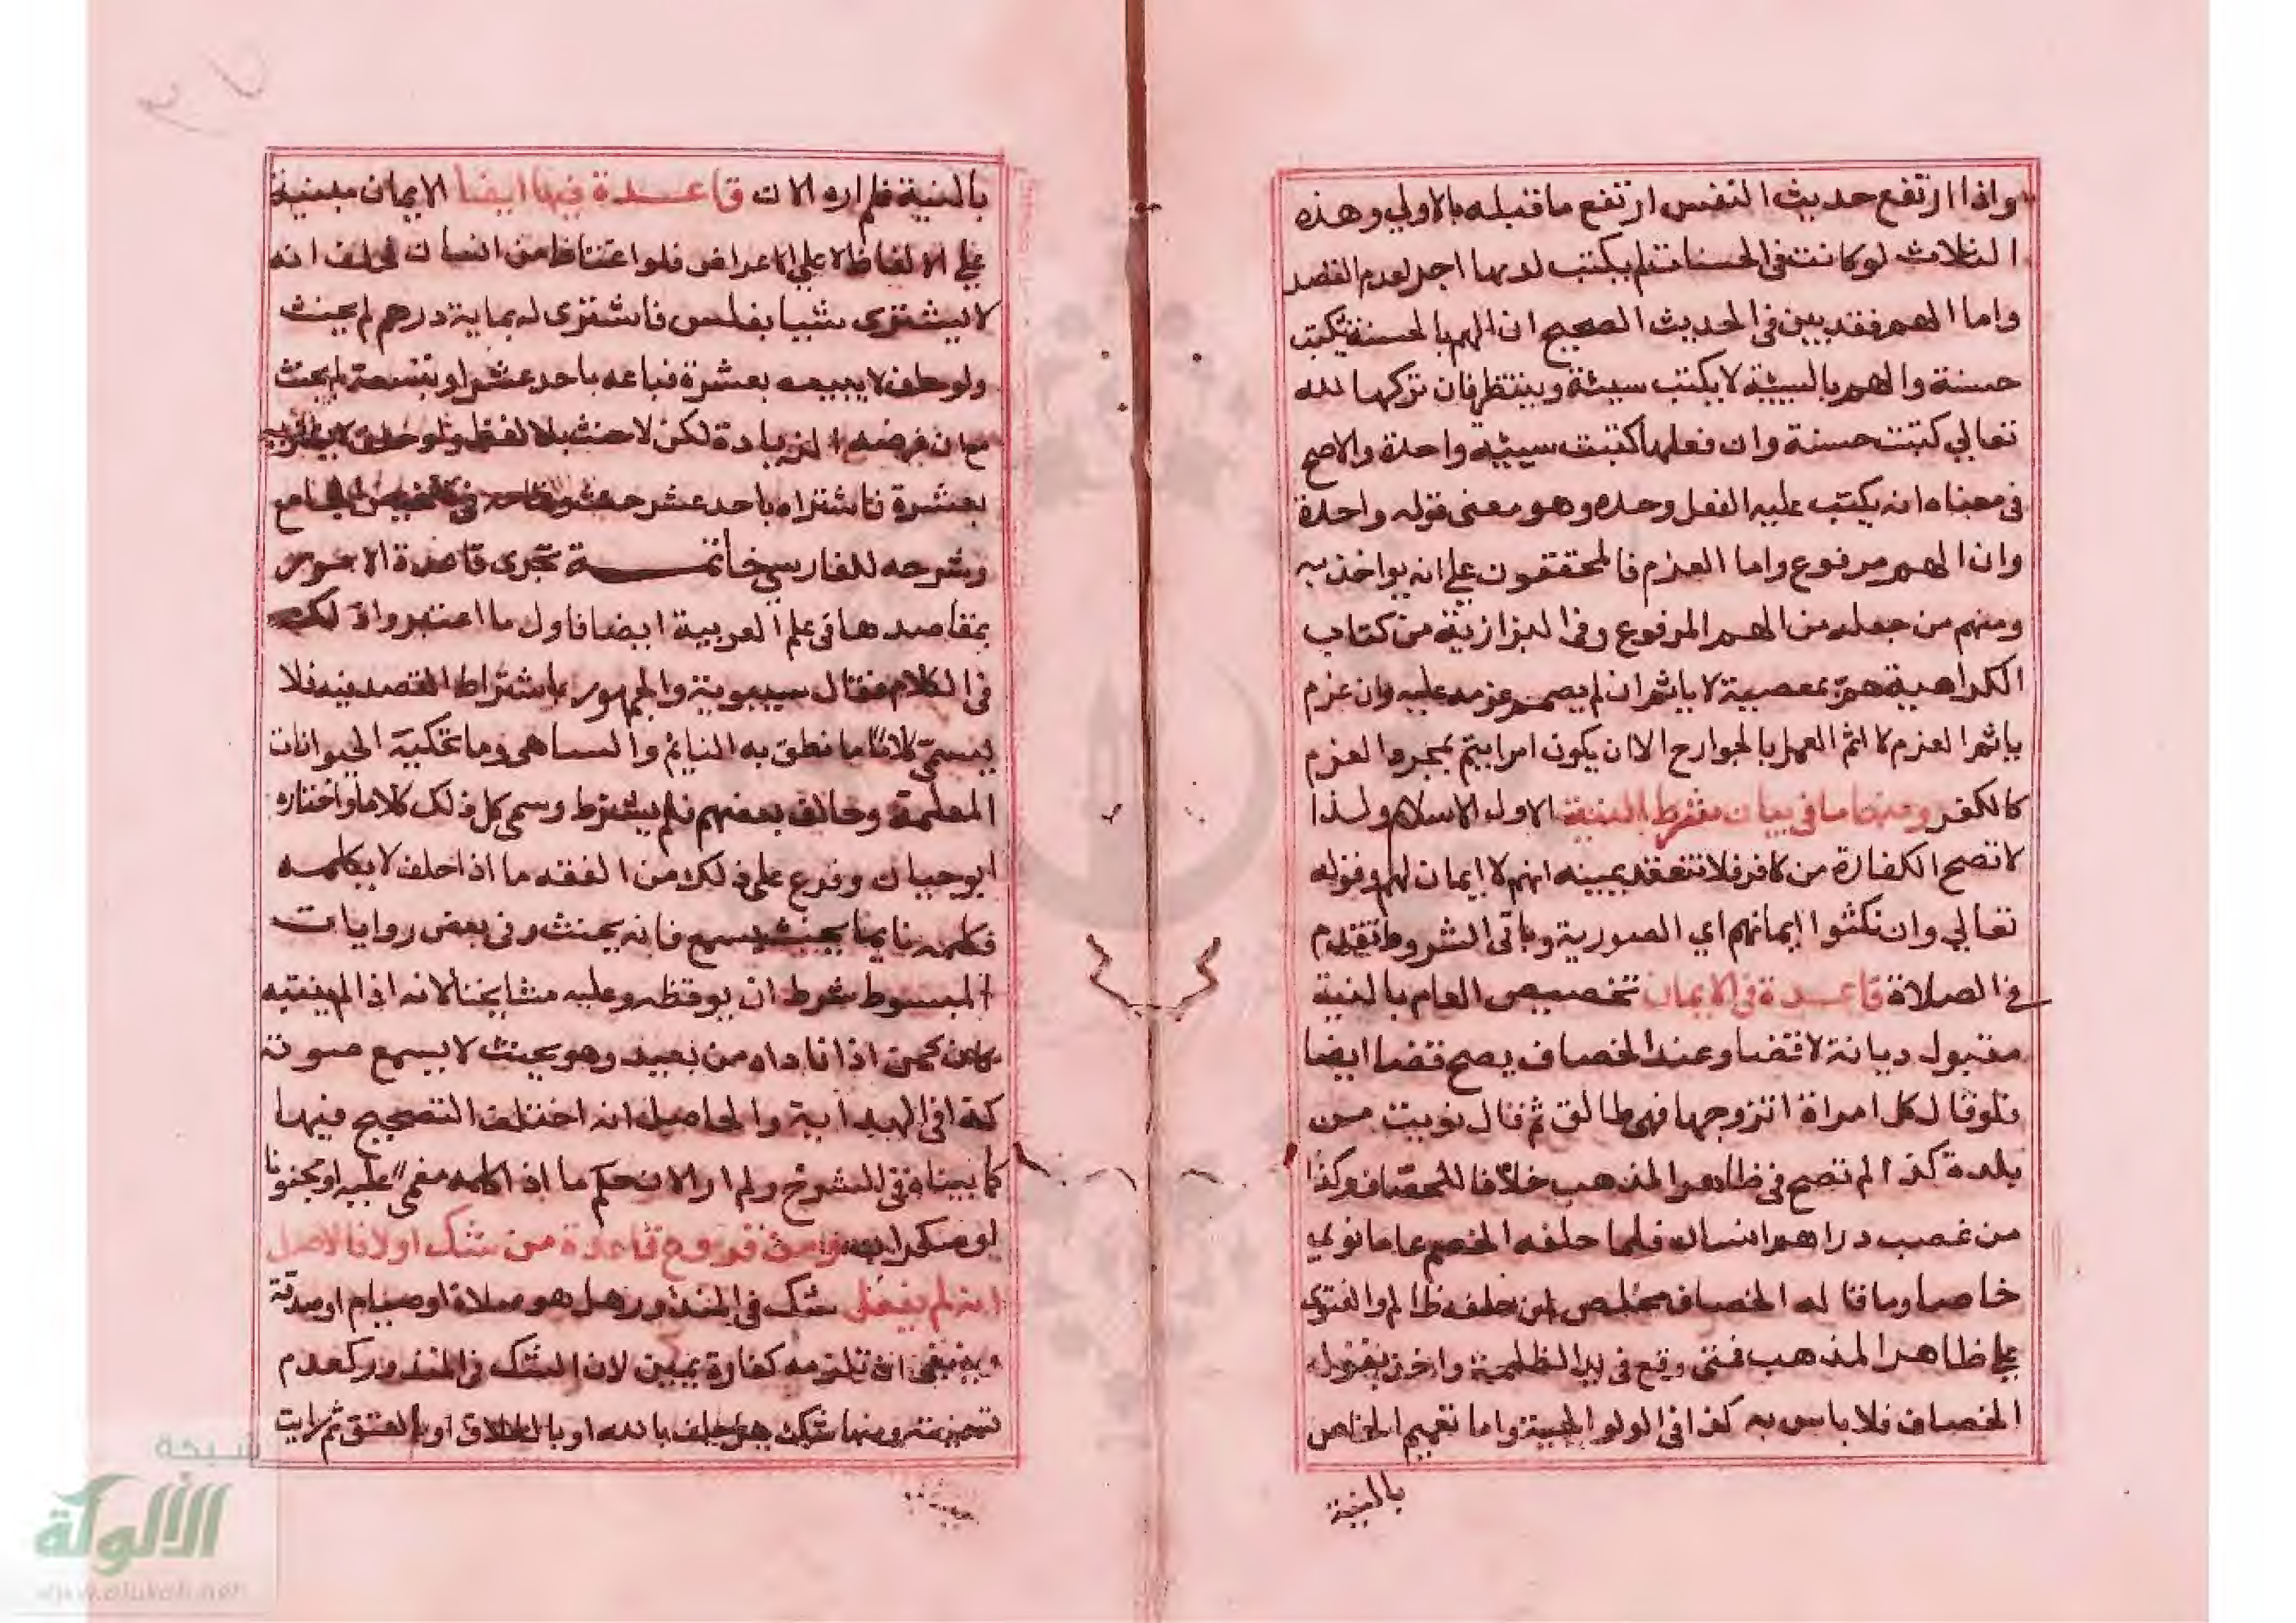 واذا ارتفع حديث النفس ارتفع ما قبله بالاولي وهذه
الثلاث لو كانت في الحسنات لم يكتب له بها اجر لعدم القصد
واما الهم فقد بين في الحديث الصحيح ان الهم بالحسنة يكتب
حسنة والهم بالسيئة لا يكتب سيئة وينتظر فان تركها لله
تعالي كتبت حسنة وان فعلها كتبت سيئة واحدة والاصح
في معناه انه يكتب عليه الفعل وحده وهو معنى قوله واحدة
وان الهم مرفوع واما العزم فالمحققون علي انه يواخذ به
ومنهم من جعله من الهم المرفوع وفي البزازية من كتاب
الكراهية هم بمعصية لا ياثم ان لم يصمم عزمه عليه وان عزم
ياثم اثم العزم لا اثم العمل بالجوارح الا ان يكون امرا يتم بمجرد العزم
كالكفر ومنها ما في بيان شرط النية الاول الاسلام ولذا
لا تصح الكفارة من كافر فلا تنعقد يمينه انهم لا ايمان لهم وقوله
تعالي وان نكثوا ايمانهم اي الصورية وباقي الشروط تقدم
في الصلاة قاعدة في الايمان تخصيص العام بالنية
مقبول ديانة لا قضا وعند الخصاف يصح قضا ايضا
فلو قال كل امراة اتزوجها فهي طالق ثم قال نويت من
بلدة كذا لم تصح في ظاهر المذهب خلافا للخصاف وكذا
من غصب دراهم انسان فلما حلفه الخصم عاما نوي
خاصا وما قاله الخصاف مخلص لمن حلفه ظالم والفتوي
علي ظاهر المذهب فمتى وقع في يد الظلمة واخذ بقول
الخصاف فلا باس به كذا في الولوالجية واما تعميم الخاص
بالنية
بالنية فلم اره الان قاعدة فيها ايضا الايمان مبنية
علي الالفاظ لا علي الاعراض فلو اغتاظ من انسان فحلف انه
لا يشتري شيا بفلس فاشترى له بماية درهم لم يحنث
ولو حلف لا يبيعه بعشرة فباعه باحد عشر او بتسعة لم يحنث
مع ان غرضه الزيادة لكن لا حنث بلا لفظ ولو حلف لا يشتريه
بعشرة فاشتراه باحد عشر حنث وتمامه في تلخيص الجامع
وشرحه للفارسي خاتمة تجري قاعدة الامور
بمقاصدها في علم العربية ايضا فاول ما اعتبروا ذلك
في الكلام فقال سيبويه والجمهور باشتراط القصد فيه فلا
يسمى كلاما ما نطق به النايم والساهي وما تحكيه الحيوانات
المعلمة وخالف بعضهم فلم يشترط وسمى كل ذلك كلاما واختاره
ابو حيان وفرع على ذلك من الفقه ما اذا حلف لا يكلمه
فكلمه نايما بحيث يسمع فانه يحنث وفي بعض روايات
المبسوط شرط ان يوقظه وعليه مشايخنا لانه اذا لم ينتبه
كان كمن اذا ناداه من بعيد وهو بحيث لا يسمع صوته
كذا في الهداية والحاصل انه اختلف التصحيح فيها
كما بيناه في الشرح ولم ار الان حكم ما اذا كلمه مغمي عليه او مجنونا
او سكران ومن فروع قاعدة من شك اولا فالاصل
انه لم يفعل شك في المنذور هل هو صلاة او صيام او صدقة
وينبغي ان تلزمه كفارة يمين لان الشك في المنذور كعدم
تسميته ومنها شك هل حلف بالله او بالطلاق او بالعتق ثم رايت
شبكة
الألوكة
www.alukah.net